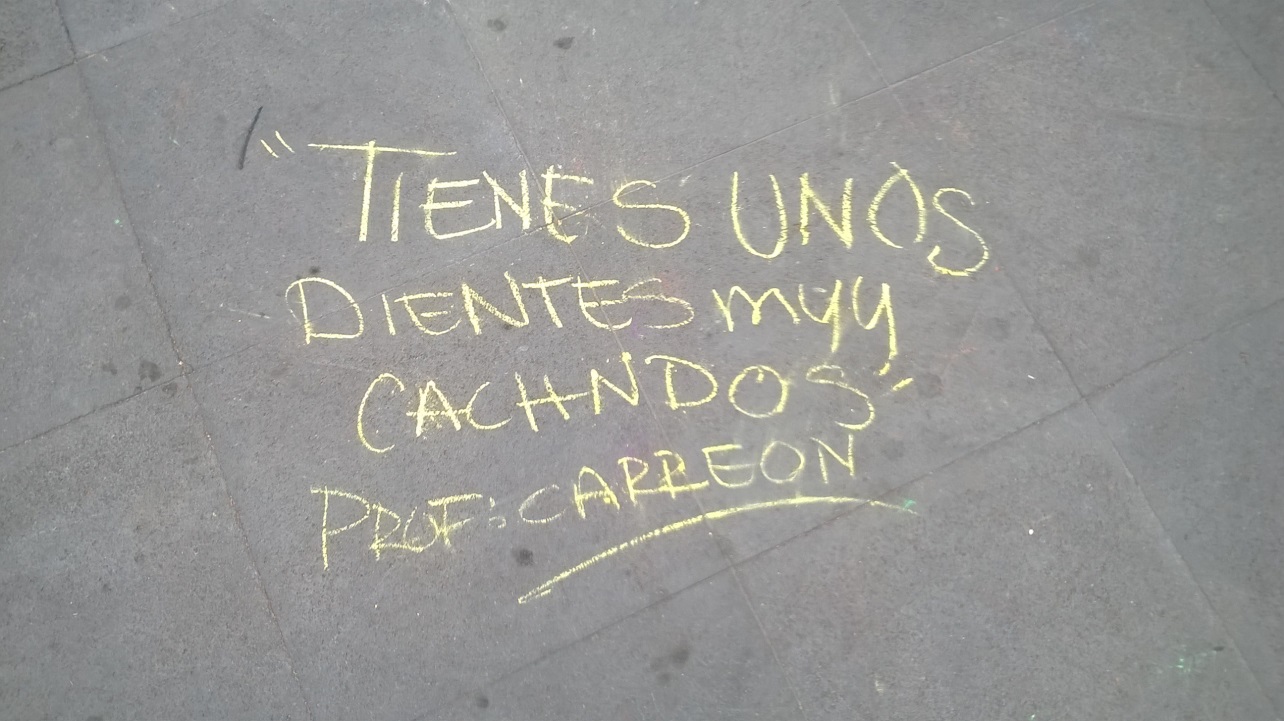 "TIENES UNOS
DIENTES muy
CACHNDOS"
PROF: CARREON